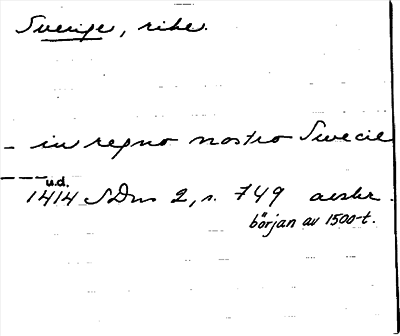 Sverige, rike.
- in regno nostro Swecie
- - - u.d.
1414 SDns 2, s. 749 avskr.
början av 1500-t.